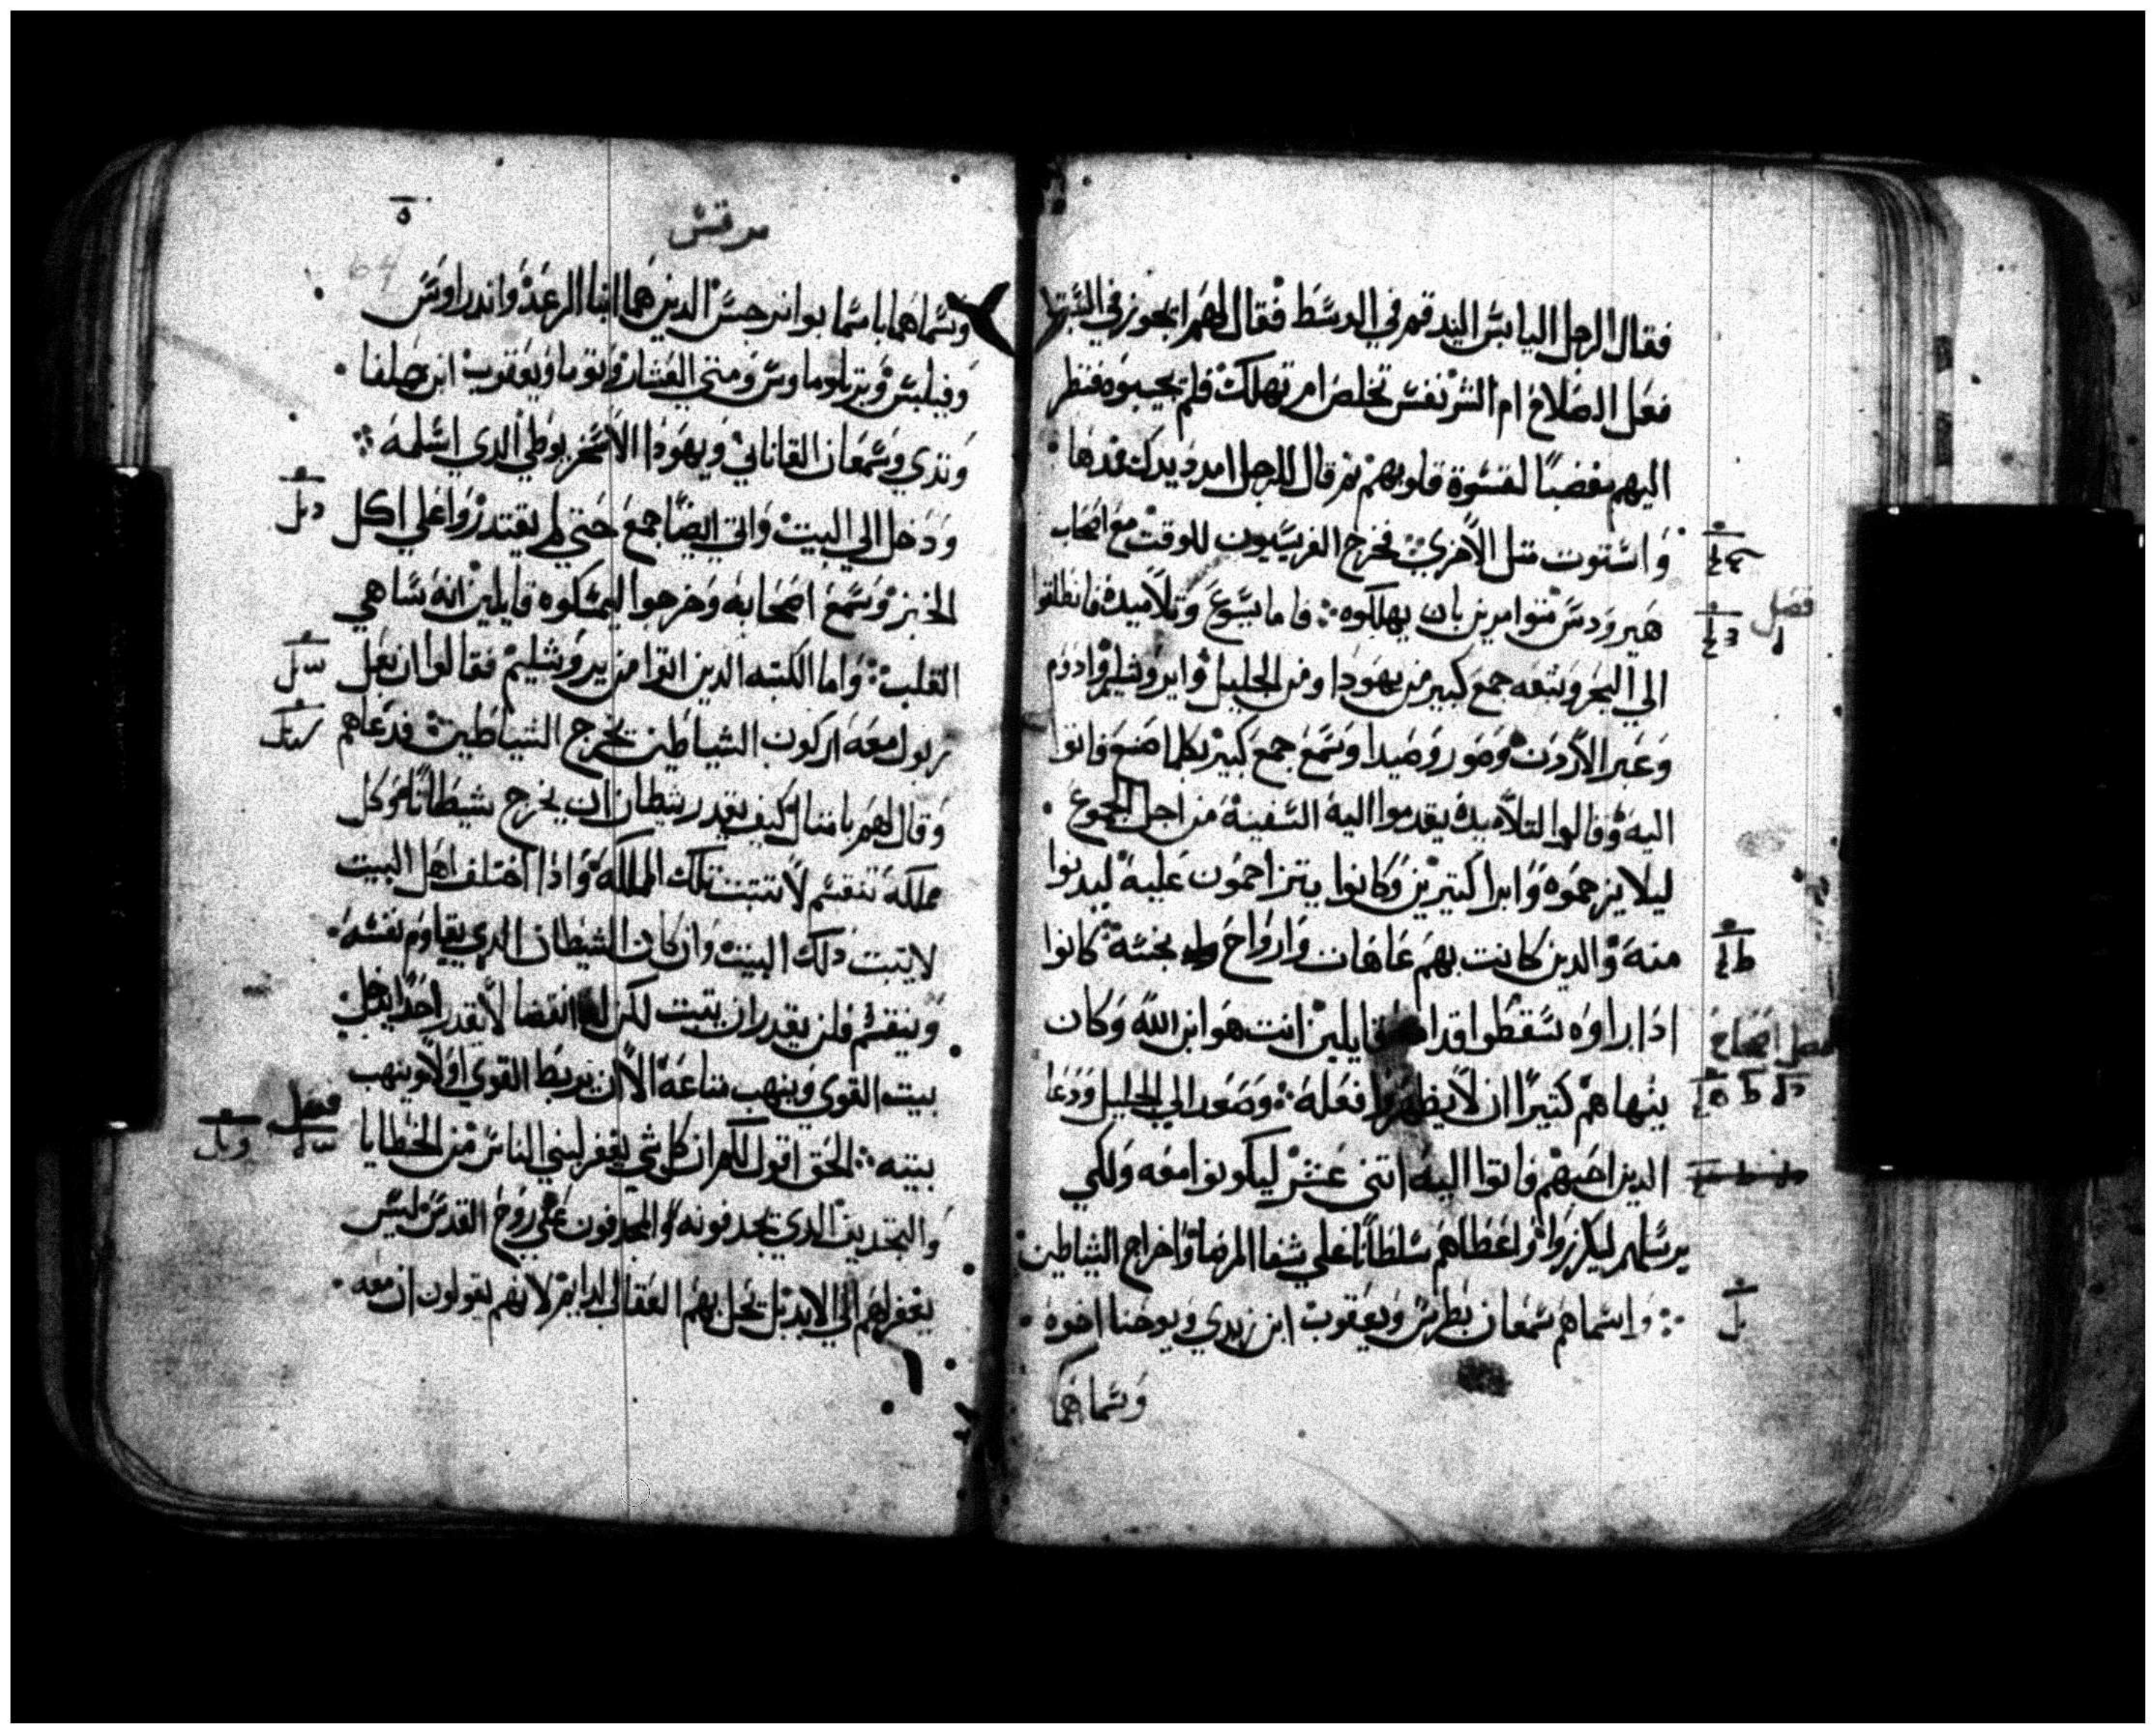 فقال الرجل اليابس اليد قم في الوسط فقال لهم ايجوز في السبت
فعل الصلاح ام الشر نفس تخلص ام تهلك فلم يجيبوه فنظر
اليهم مغضبًا لقسوة قلوبهم ثم قال للرجل امدد يدك فمدها
واستوت متل الاخري فخرج الفريسيون للوقت مع اصحاب
هيرودس متوامرين بان يهلكوه فاما يسوع وتلاميده فانطلقوا
فصل
الي البحر وتبعه جمع كبير من يهودا ومن الجليل وايروشليم وادوم
وعبر الاردن وصور وصيدا وسمع جمع كبير بكلما صنع فاتوا
اليه وقالوا لتلاميده يقدموا اليه السفينة من اجل الجموع
ليلا يزحموه وابرا كتيرين وكانوا يتزاحمون عليه ليدنوا
منه والدين كانت بهم عاهات وارواح نجسه كانوا
ادا راوه سقطوا قدامه قايلين انت هو ابن الله وكان
ينهاهم كتيرًا ان لا يظهروا فعله وصعد الي الجليل ودعا
الدين احبهم فاتوا اليه اتني عشر ليكونوا معه ولكي
يرسلهم ليكرزوا واعطاهم سلطانًا علي شفا المرضا واخراج الشياطين
واسماهم سمعان بطرس ويعقوب ابن زبدي ويوحنا اخوه
وسماهما
مرقس
64
وسماهما باسما بوانرجس الدين هما ابنا الرعد واندراوس
وفيلبس وبرتلوماوس ومتي العشار وتوما ويعقوب ابن حلفا
وتدي وسمعان القاناني ويهودا الاسخريوطي الدي اسلمه
ودخل الي البيت واتي ايضًا جمع حتي لم يقتدروا علي اكل
الخبز وسمع اصحابه وخرجوا ليمسكوه قايلين انه ساهي
القلب واما الكتبه الدين اتوا من يروشليم فقالوا ان بعل
زبول معه اركون الشياطين يخرج الشياطين فدعاهم
وقال لهم بامتال كيف يقدر شيطان ان يخرج شيطانًا وكل
مملكة تنقسم لا تتبت تلك المملكة وادا اختلف اهل البيت
لا يتبت دلك البيت وان كان الشيطان الدي يقاوم نفسه
وينقسم فلن يقدر ان يتبت لكن له انقضا لا يقدر احدًا يدخل
بيت القوي وينهب متاعه الا ان يربط القوي اولا وينهب
فصل
بيته الحق اقول لكم ان كل شي يغفر لبني الناس من الخطايا
والتجديف الدي يجدفونه والمجدفون علي روح القدس ليس
يغفر لهم الي الابد بل يحل بهم العقاب الدايم لانهم يقولون ان معه